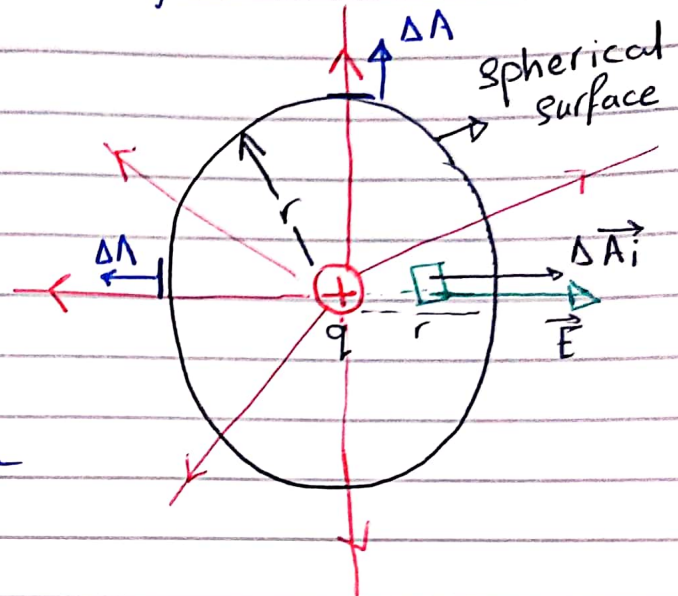 ΔA
spherical
surface
r
ΔA
ΔA⃗i
+
q
r
E⃗